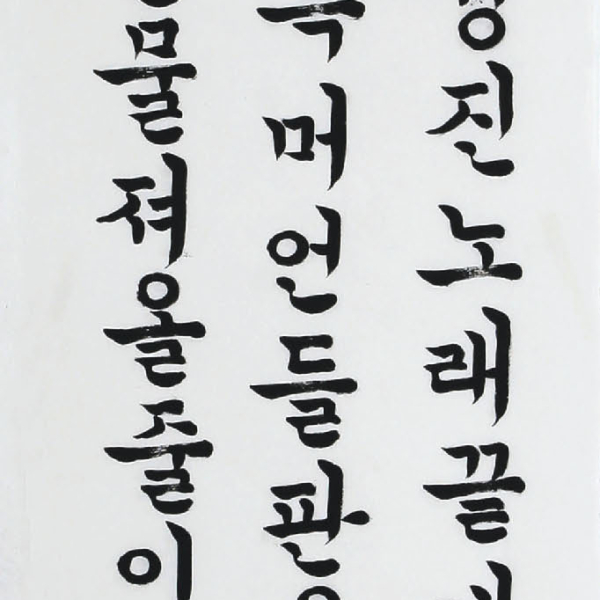 진노래끌
머언들판
물져올줄이